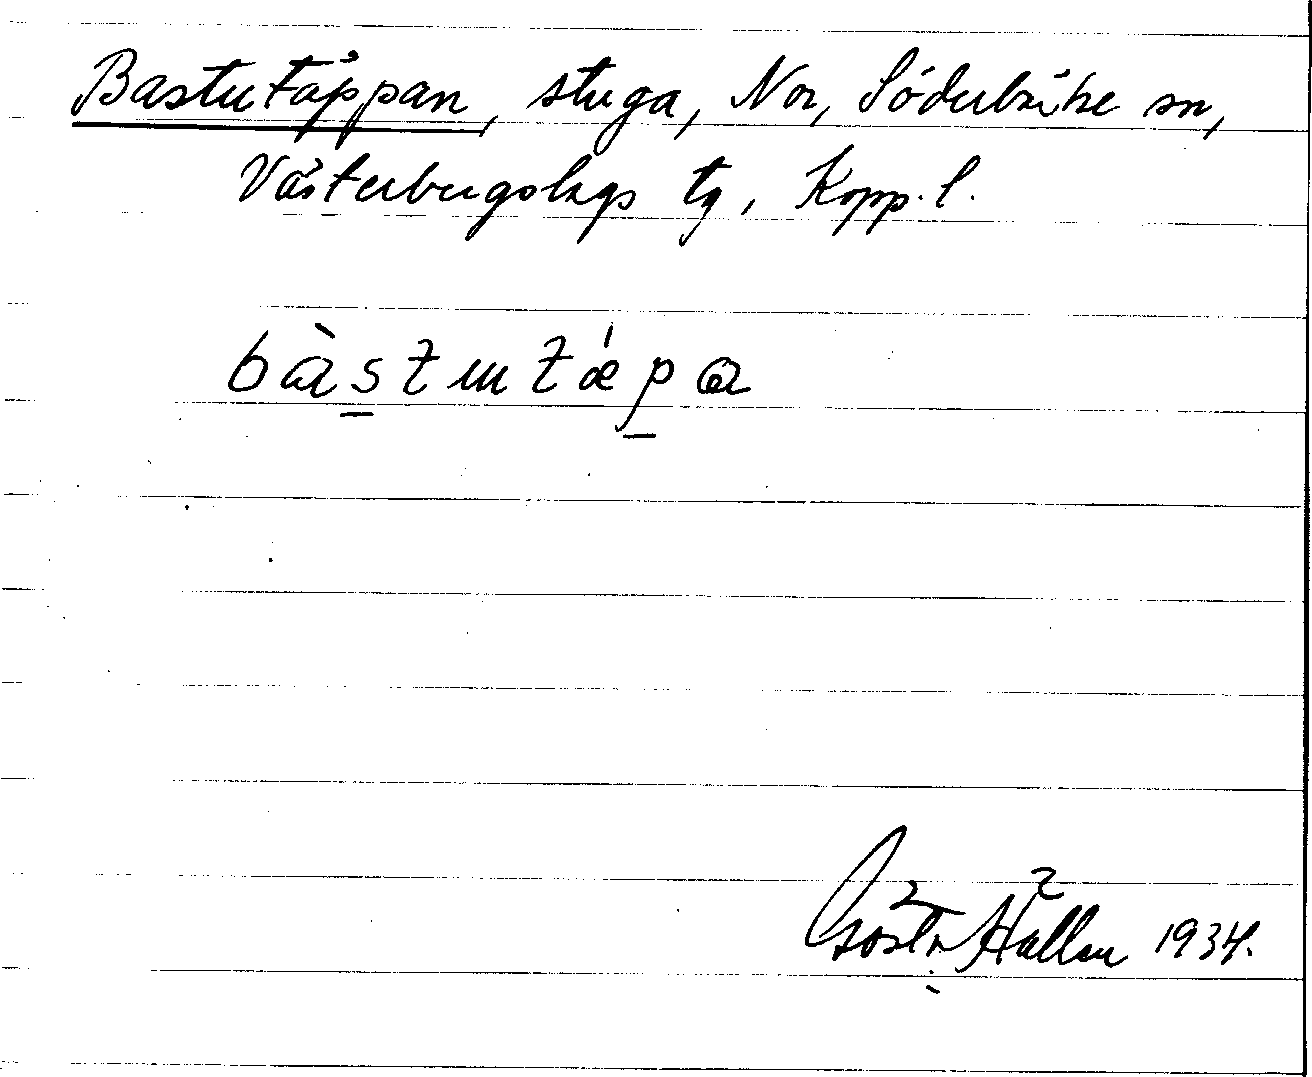 Bastutäppan, stuga, Nor, Söderbärke sn,
Västerbergslags tg, Kopp. l.
bàs̱tutǽp̱a
Gösta Hallen 1934.